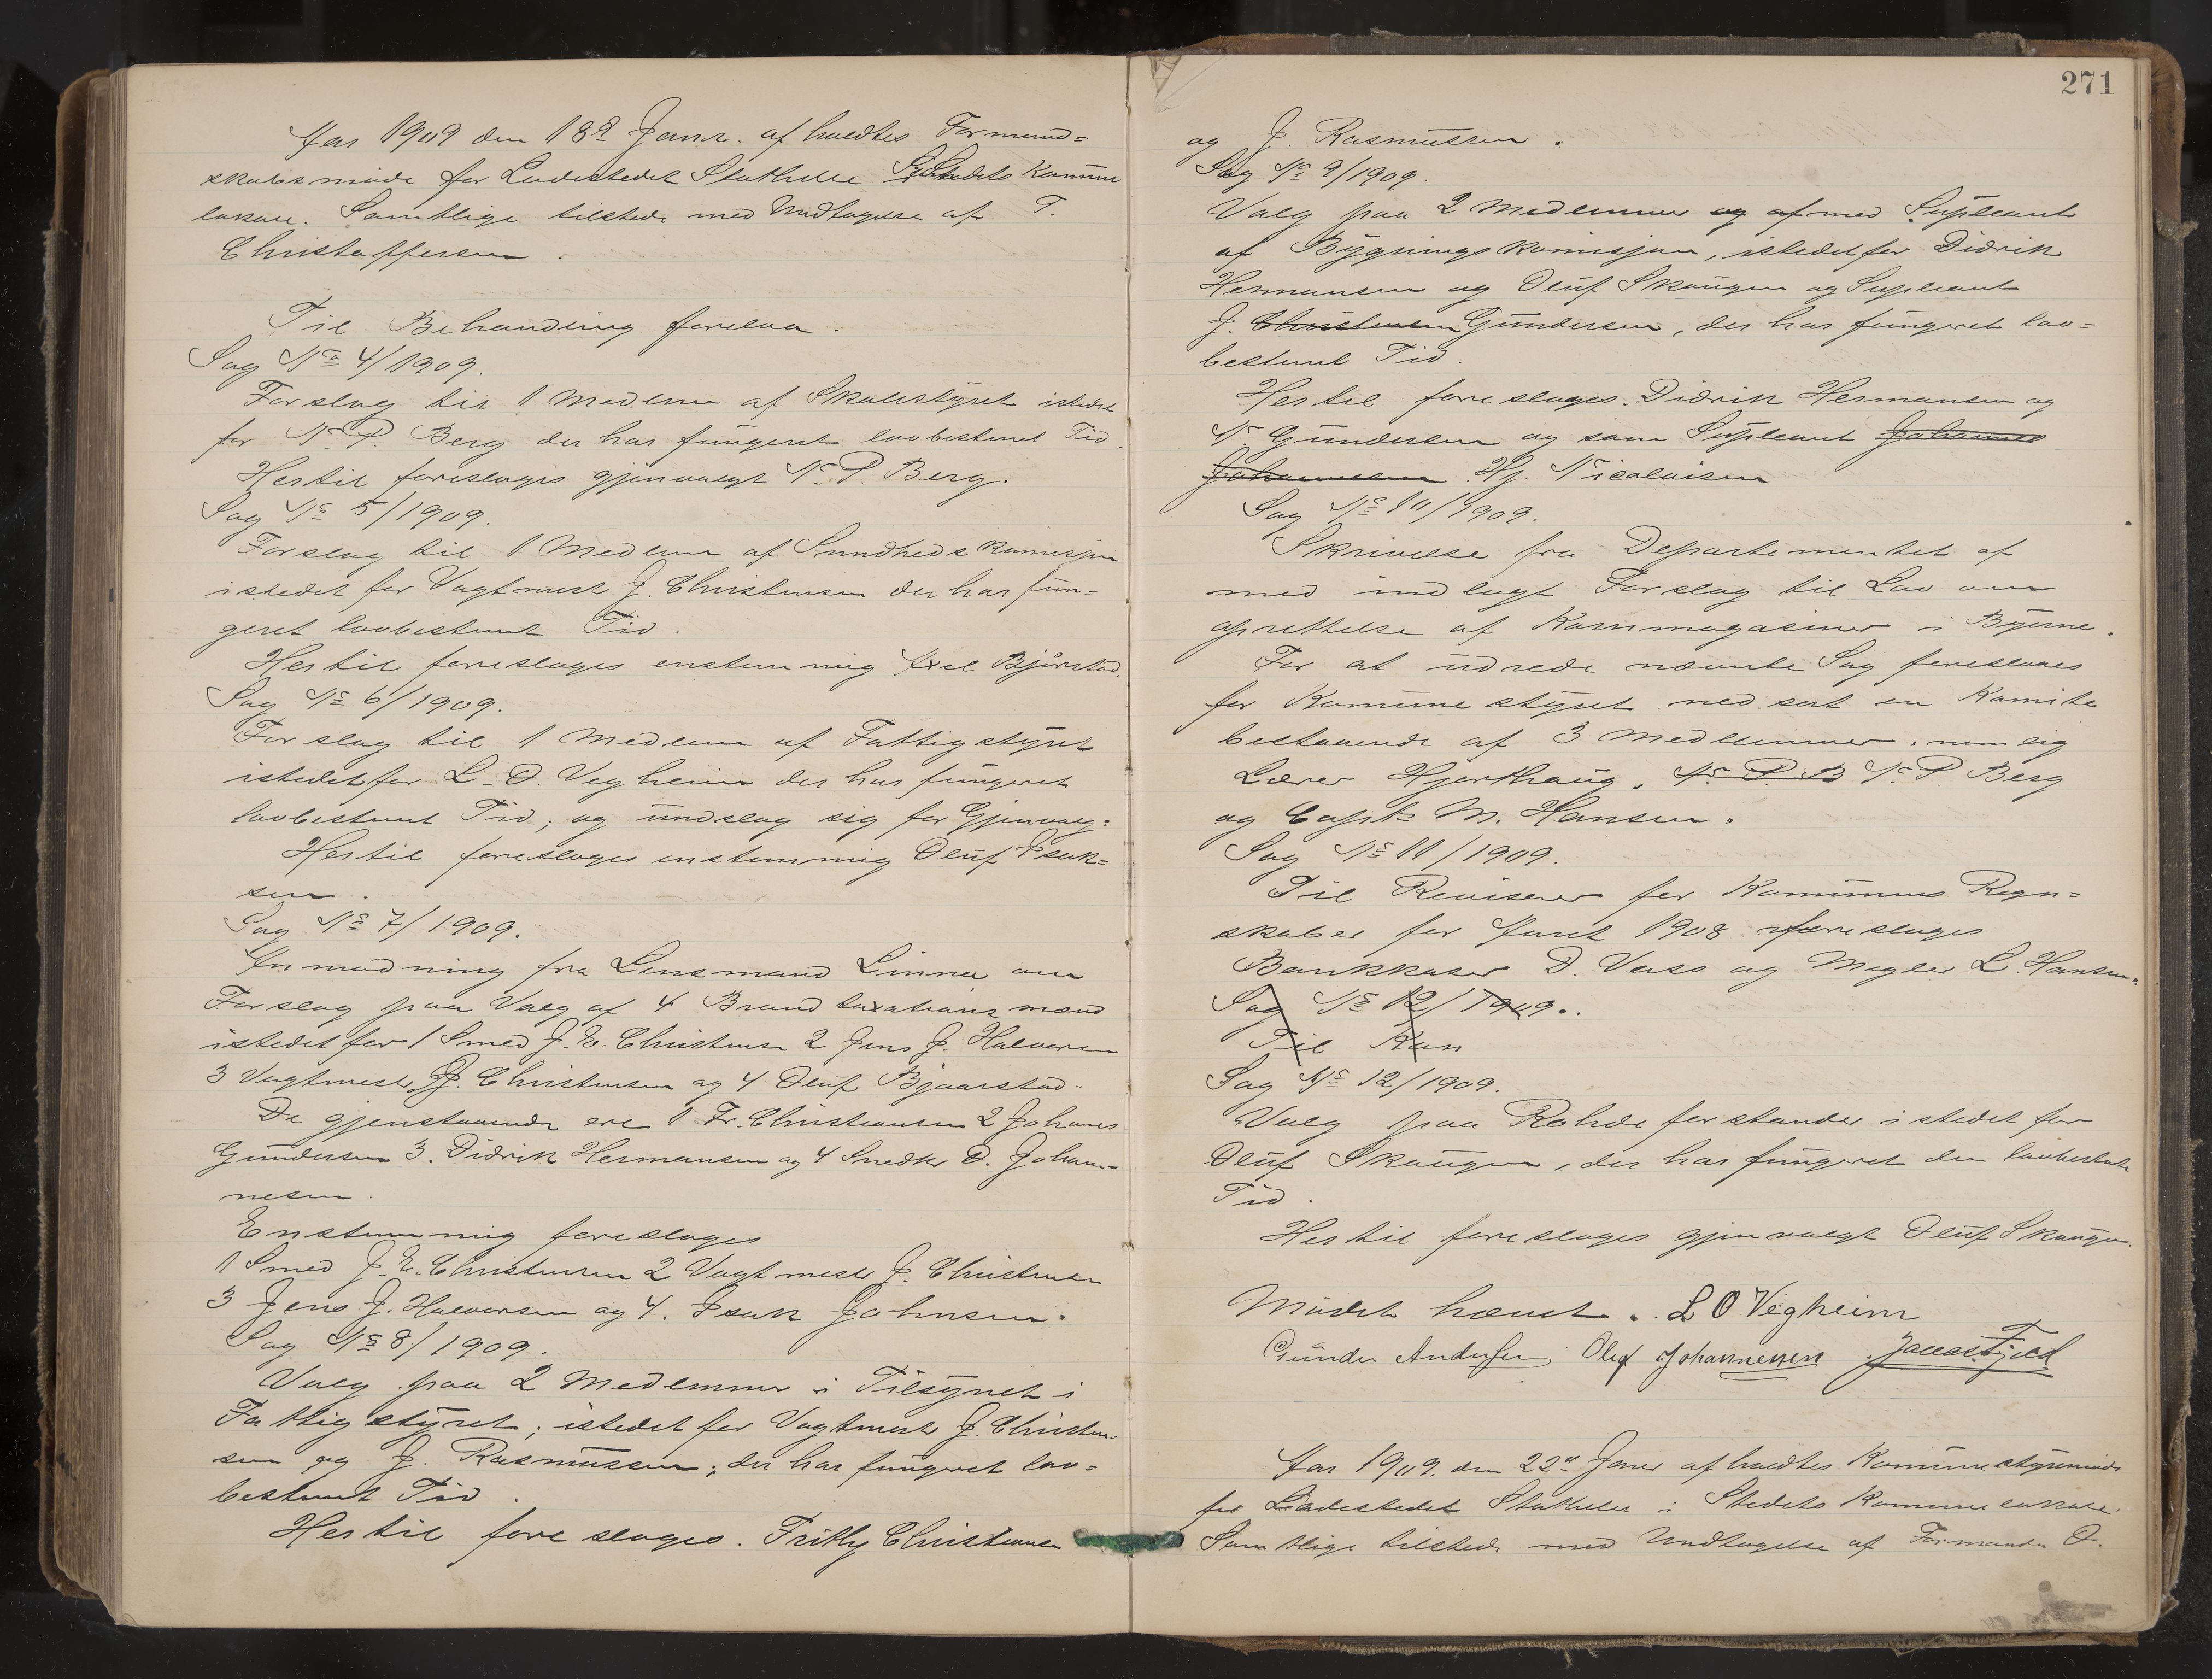 Aar 1909 den 18de Janr. afholdtes Formand=
skabsmöde for Ladestedet Stathelle Stedets Komune
lokale. Samtlige tilstede med Undtagelse af T.
Christoffersen.
Til Behandling forelaa.
Sag No 4/1909.
Forslag til 1 Medlem af Skolestyret istedet
for N. P. Berg der har fungeret lovbestemt Tid.
Hertil foreslages gjenvalgt N. P. Berg.
Sag No 5/1909.
Forslag til 1 Medlem af Sundhedskomisjon
istedet for Vagtmest J. Christensen der har fun=
geret lovbestemt Tid.
Hertil foreslages enstemmig Axel Bjårstad.
Sag No 6/1909.
Forslag til 1 Medlem af Fattigstyret
istedetfor L. O. Vegheim der har fungeret
lovbestemt Tid, og undslog sig for Gjenvalg.
Hertil foreslages enstemmig Oluf Isak=
sen.
Sag No 7/1909.
Anmodning fra Lensmand Linna om
Forslag paa Valg af 4 Brandtaxations mænd
istedetfor 1 Smed J. E. Christensen 2 Jens J. Halvorsen
3 Vagtmest J. Christensen og 4 Oluf Bjaarstad.
De gjenstaaende ere 1 Fr. Christiansen 2 Johanes
Gundersen 3. Didrik Hermansen og 4 Snedker O. Johan=
nesen.
Enstemmig foreslages
1 Smed J. E. Christensen 2 Vagtmest J. Christensen
3 Jens J. Halvorsen og 4. Isak Johnsen.
Sag No 8/1909.
Valg paa 2 Medlemmer i Tilsynet i
Fattigstyret, istedet for Vagtmest J. Christen=
sen og J. Rasmussen, der har fungeret lov=
bestemt Tid.
Hertil foreslages. Frithj Christiansen
271
og J. Rasmussen.
Sag No 9/1909.
Valg paa 2 Medlemmer og af med Supleant
af Bygningskomisjon, istedetfor Didrik
Hermansen og Oluf Skougen og Supleant
J. Christensen Gundersen, der har fungeret lov=
bestemt Tid.
Hertil foreslages. Didrik Hermansen og
N. Gundersen og som Supleant Johannes
Johannesen Hj. Nicolaisen
Sag No 10/1909.
Skrivelse fra Departementet af
med indlagt Forslag til Lov om
oprettelse af Kornmagasiner i Byerne.
For at udrede nævnte Sag foreslaaes
for Komunestyret nedsat en Komite
bestaaende af 3 Medlemmer. nemlig
Lærer Hjorthaug, N. P. B N. P. Berg
og Capt M. Hansen.
Sag No 11/1909.
Til Revisorer for Komunens Regn=
skaber for Aaret 1908 foreslages
Bankkaser D. Vass og Megler L. Hansen.
Sag No 12/1909.
Til Kon
Sag No 12/1909.
Valg paa Rohdeforstander istedet for
Oluf Skougen, der har fungeret den lovbestemte
Tid.
Hertil foreslages gjenvalgt Oluf Skougen.
Mödet hævet. L O Vegheim
Gunder Andersen Oluf Johannesen
Aar 1909. den 22de Janr afholdtes Komunestyremöde
for Ladestedet Stathelle i Stedets Komunelokale.
Samtlige tilstede med Undtagelse af Formanden O.